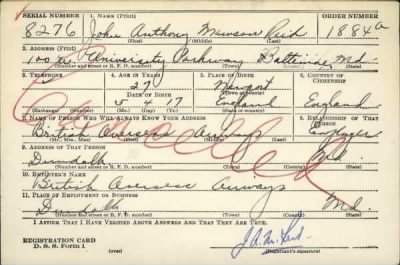 SERIAL NUMBER 1. NAME (Print) ORDER NUMBER
8276 John Anthony Mawson Reid 1884a
(First) (Middle) (Last)
2. ADDRESS (Print)
100 W. University Parkway Baltimore, Md.
(Number and street or R. F. D. number) (Town) (County) (State)
3. TELEPHONE 4. AGE IN YEARS 5. PLACE OF BIRTH 6. COUNTRY OF CITIZENSHIP
27 Newport
DATE OF BIRTH (Town or county)
5 4 17 England England
(Exchange) (Number) (Mo.) (Day) (Yr.) (State or country)
7. NAME OF PERSON WHO WILL ALWAYS KNOW YOUR ADDRESS 8. RELATIONSHIP OF THAT PERSON
British Overseas Airways Employer
(Mr., Mrs., Miss) (First) (Middle) (Last)
9. ADDRESS OF THAT PERSON
Dundalk Md.
(Number and street or R. F. D. number) (Town) (County) (State)
10. EMPLOYER'S NAME
British Overseas Airways
11. PLACE OF EMPLOYMENT OR BUSINESS
Dundalk Md.
(Number and street or R. F. D. number) (Town) (County) (State)
I AFFIRM THAT I HAVE VERIFIED ABOVE ANSWERS AND THAT THEY ARE TRUE.
REGISTRATION CARD J. A. M. Reid
D. S. S. Form 1 (over) (Registrant's signature)
Cancelled